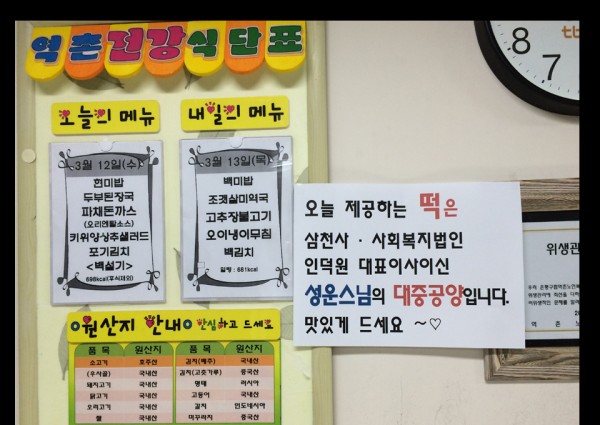 역촌건강식단표
오늘의 메뉴
내일의 메뉴
3월 12일(수)
현미밥
두부된장국
파채돈까스
(오리엔탈소스)
키위양상추샐러드
포기김치
<백설기>
698kcal(후식제외)
3월 13일(목)
백미밥
조갯살미역국
고추장불고기
오이냉이무침
백김치
열량 : 681kcal
오늘 제공하는 떡은
삼천사 · 사회복지법인
인덕원 대표이사이신
성운스님의 대중공양입니다.
맛있게 드세요 ~♡
원산지 안내 안심하고 드세요
품목 원산지 품목 원산지
소고기 호주산 김치(배추) 국내산
(우사골) 국내산 김치(고춧가루) 중국산
돼지고기 국내산 명태 러시아
닭고기 국내산 고등어 국내산
오리고기 국내산 갈치 인도네시아
쌀 국내산 미꾸라지 중국산
8
7
tb
위생관
역 촌 노